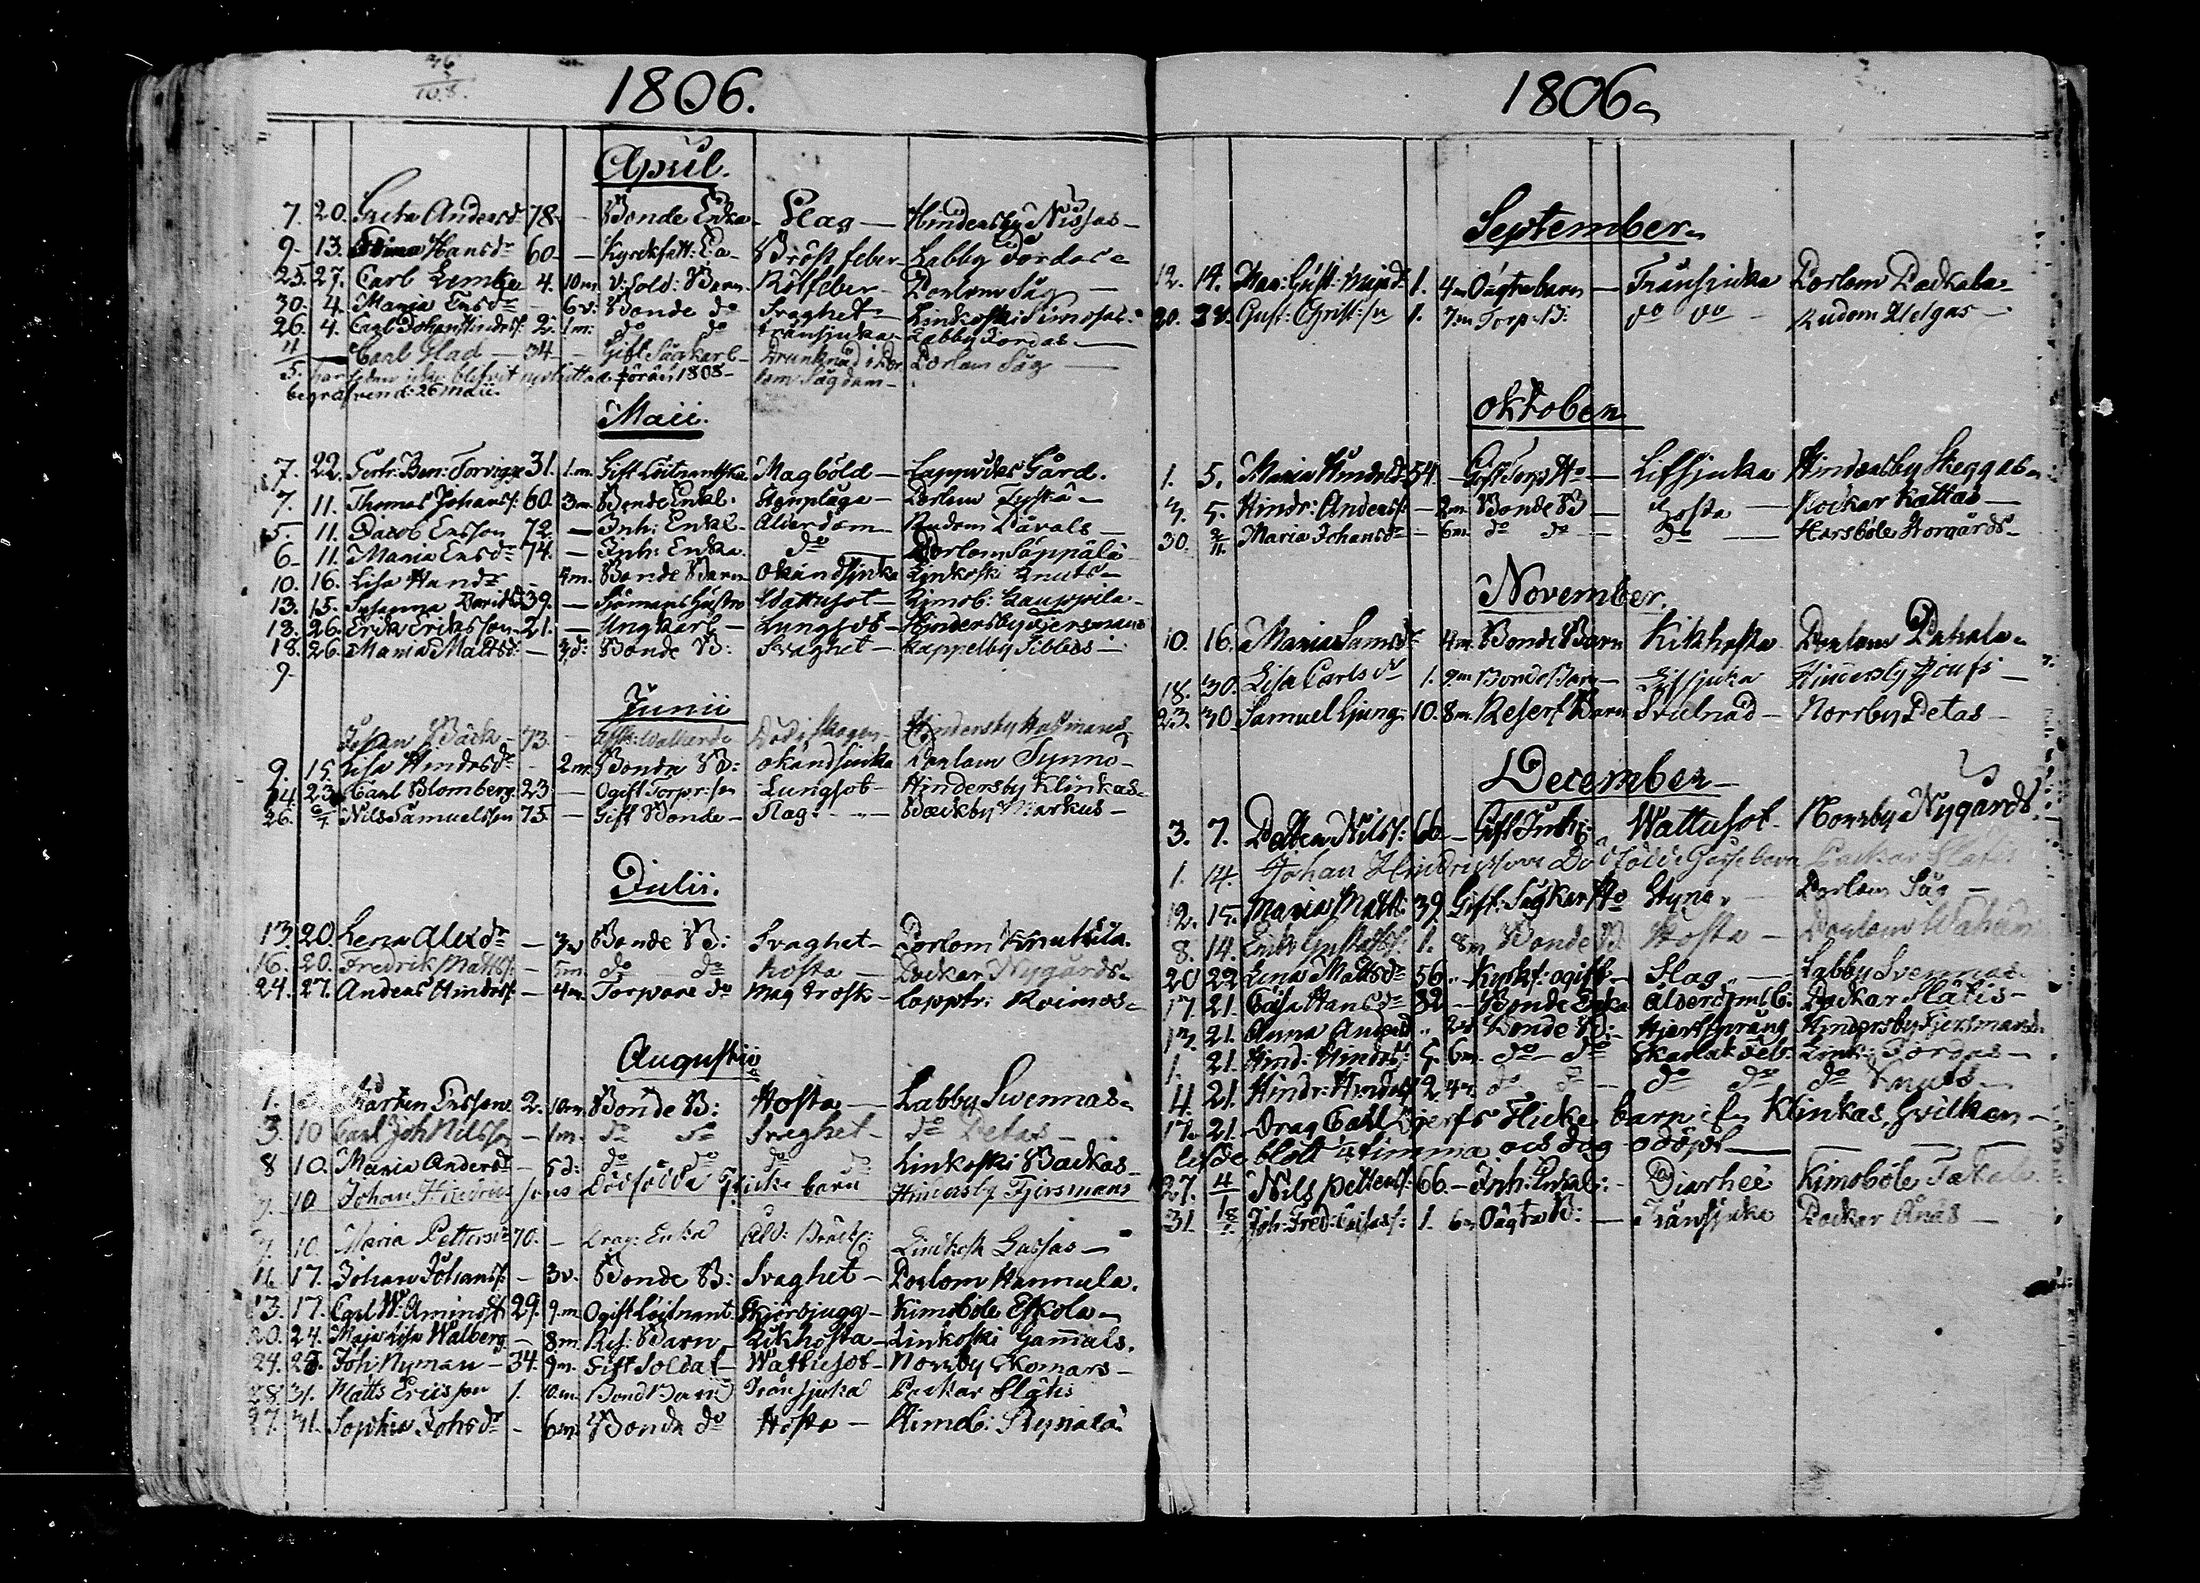 36
108.
1806.
April.
7. 20. Greta Andersd. 78. — Bonde Enka Slag — Hindersby Nissas —
9. 13. Hansdr 60. — Kyrckfatt: Bröst feber Labby Tordas
25. 27. Carl Lemke 4. 10m. v: Sold: Barn Rötfeber Porlom Såg —
30. 4. Maria Ersdr 6v: Bonde do Svaghet Linkoski Simosas
26. 4. Carl Johan Hindrs: 2. 1m: do do Transjuka Labby Tordas —
11/5. — Carl Glad — 34 — Gift Sågkarl Drunknad i Por Porlom Såg —
har sedan icke blifvit förrän 1808 — lom Sågdam —
begrafven d: 26 Maii.
Maii.
7. 22. Gertr: Ben: Torvigge 31. 1.m. Gift Löitnantska Magböld — Lappnäs Gård.
7. 11. Thomas Johanss: 60. 3m Bonde Enkl: Porlom Tyskä —
5. 11 Jacob Ersson 72. — Inh: Enkl. Ålderdom Rudom Påvals —
6. 11. Maria Ersdr 74. — Inh: Enka. do Porlom Säppälä
10. 16. Lisa Handr 4m. Bonde Barn Okändsjuka Linkoski Knuts —
13. 15. Susanna Davidsd 39. — Sjömans Hustro Wattusot — Kimob: Kauppila
13. 26. Erik Eriksson 21. — Ungkarl — Lungsot — Hindersby Fjersmans
18. 26. Maria Mattsd: — 3d: Bonde B: Svaghet — Kappelby Sibbess —
9.
Junii
Johan Bäck — 73. — Död i Skogen Hindersby Hasmans
9. 15. Lisa Hindrsdr 2m Bonde B: Okändsjuka Porlom Synno —
14. 23. Carl Blomberg 23 — Ogift Torpr: son Lungsot — Hindersby Klinkas
26. 6/7 Nils Samuelsson 75. — Gift Bonde — Slag — Bäckby Markus —
Julii.
13. 20. Lena Alexdr — 3v Bonde B: Svaghet — Porlom Knutila.
16. 20. Fredrik Matts: — 5m do do hosta — Pockar Nygårds —
24. 27. Anders Hindrs: — 4m. Torpare do Mag trosk — Lapptr: Reimos
Augustii
1. Mårten Erssons 2. 10m. Bonde B: Hosta — Labby Svennas
3. 10 Carl Joh Nilsson — 1m. do do Svaghet — do Petas —
8 10. Maria Andersdr — 5d: do do do do Linkoski Backas —
10 Johan Hindricssons dödfödda flicke barn Hindersby Fjersmans
10. Maria Pettersdr 70. — Drag: Enka Åld: Bräckl: Linkosk Gassas —
11. 17. Johan Johanss: — 3v. Bonde B: Svaghet — Porlom Hannula.
13. 17. Carl W: Aminoff 29. 9.m Ogift Löitnant Skjörbjugg — Kimoböle Eskola —
20. 24. Maja Lisa Walberg — 8m Res: Barn Kikhosta — Linkoski Gammals.
24. 28. Joh: Nyman — 34. 9m. Gift Soldat Wattusot — Norrby Skomars —
28. 31. Matts Ericsson 1. 10.m. Bond Barn Transjuka Pockar Slätis
27. 31. Sophia Johsdr — 6m Bonde do Hosta — Kimob: Skynälä
1806
September
12. 14. Mar: Gust: 1. 4m Oägta barn — Transjuka Porlom Packala
20. 28. Gust: Christ: sn 1. 7m Torp: B: do do — Rudom Helgas —
Oktober
1. 5. Maria Hindrsd 54. — Gift Torps Ho — Lefsjuka Hindersby Skeggas
3. 5. Hindr: Anderss: — 2m. Bonde B — Hosta — Pockar Kattas —
30. 2/11. Maria Johansdr — 6m. do do — do — Harsböle Storgårds —
November.
10. 16. Maria Samsdr 4m. Bonde Barn Kikhosta Porlom Pakala
18. 30. Lisa Carlsdr 1. 9.m Bonde Barn Lefsjuka Hindersby Joufs —
23. 30. Samuel Ljung 10. 8m. Reserf Barn Svulnad — Norrby Petas —
December —
3. 7. Petter Nilss: 60 — Gift Inh: Wattusot Norrby Nygårds.
1. 14. Johan Hindricssons Dödfödde Gossebarn Pockar Slätis
12. 15. Maria Matts 39. Gift Sågkar Ho Styng. Porlom Såg —
8. 14. Erik Gustafss: 1. 8m Bonde B Hosta — Porlom Wahan
20 22 Lena Mattsdr 56. Kyrkf: ogift — Slag — Labby Svennas
17. 21. Cajsa Hansdr 82. — Bonde Enka Ålderdoml: Pockar Slätis —
13. 21. Anna Andersd 2d Bonde B: Hjertsprång Hindersby Fjersmans
1. 21. Hind: Hindrs: 5. 6m. do do Skarlak feb: Link: Tordas —
4. 21. Hindr: Hindrs 2. 4m. do do — do do do Knuts —
17. 21. Drag Carl Djerfs Flicke barn ifr. Klinkas, hvilken —
lefde blott ¼ timma och dog odöpt —
27. 4 Nils Petters: 66. — Inh: Enkl: — Diarhee Kimoböle Tåkala.
31. 18/1. Joh: Fred: Cajsas: 1. 6m Oägta B: — Transjuka Pockar Ånäs —